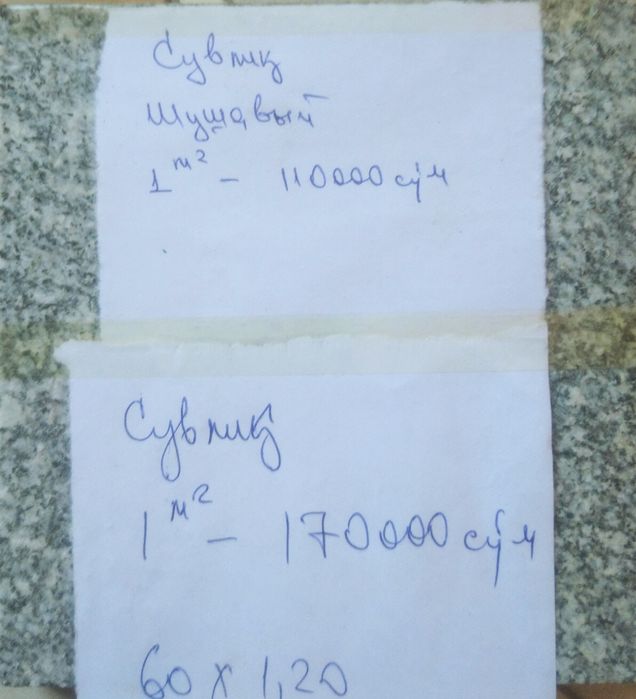 Сувлиқ
Шушавый
1 м² - 110000 сўм
Сувлиқ
1 м² - 170000 сўм
60 х 1,20